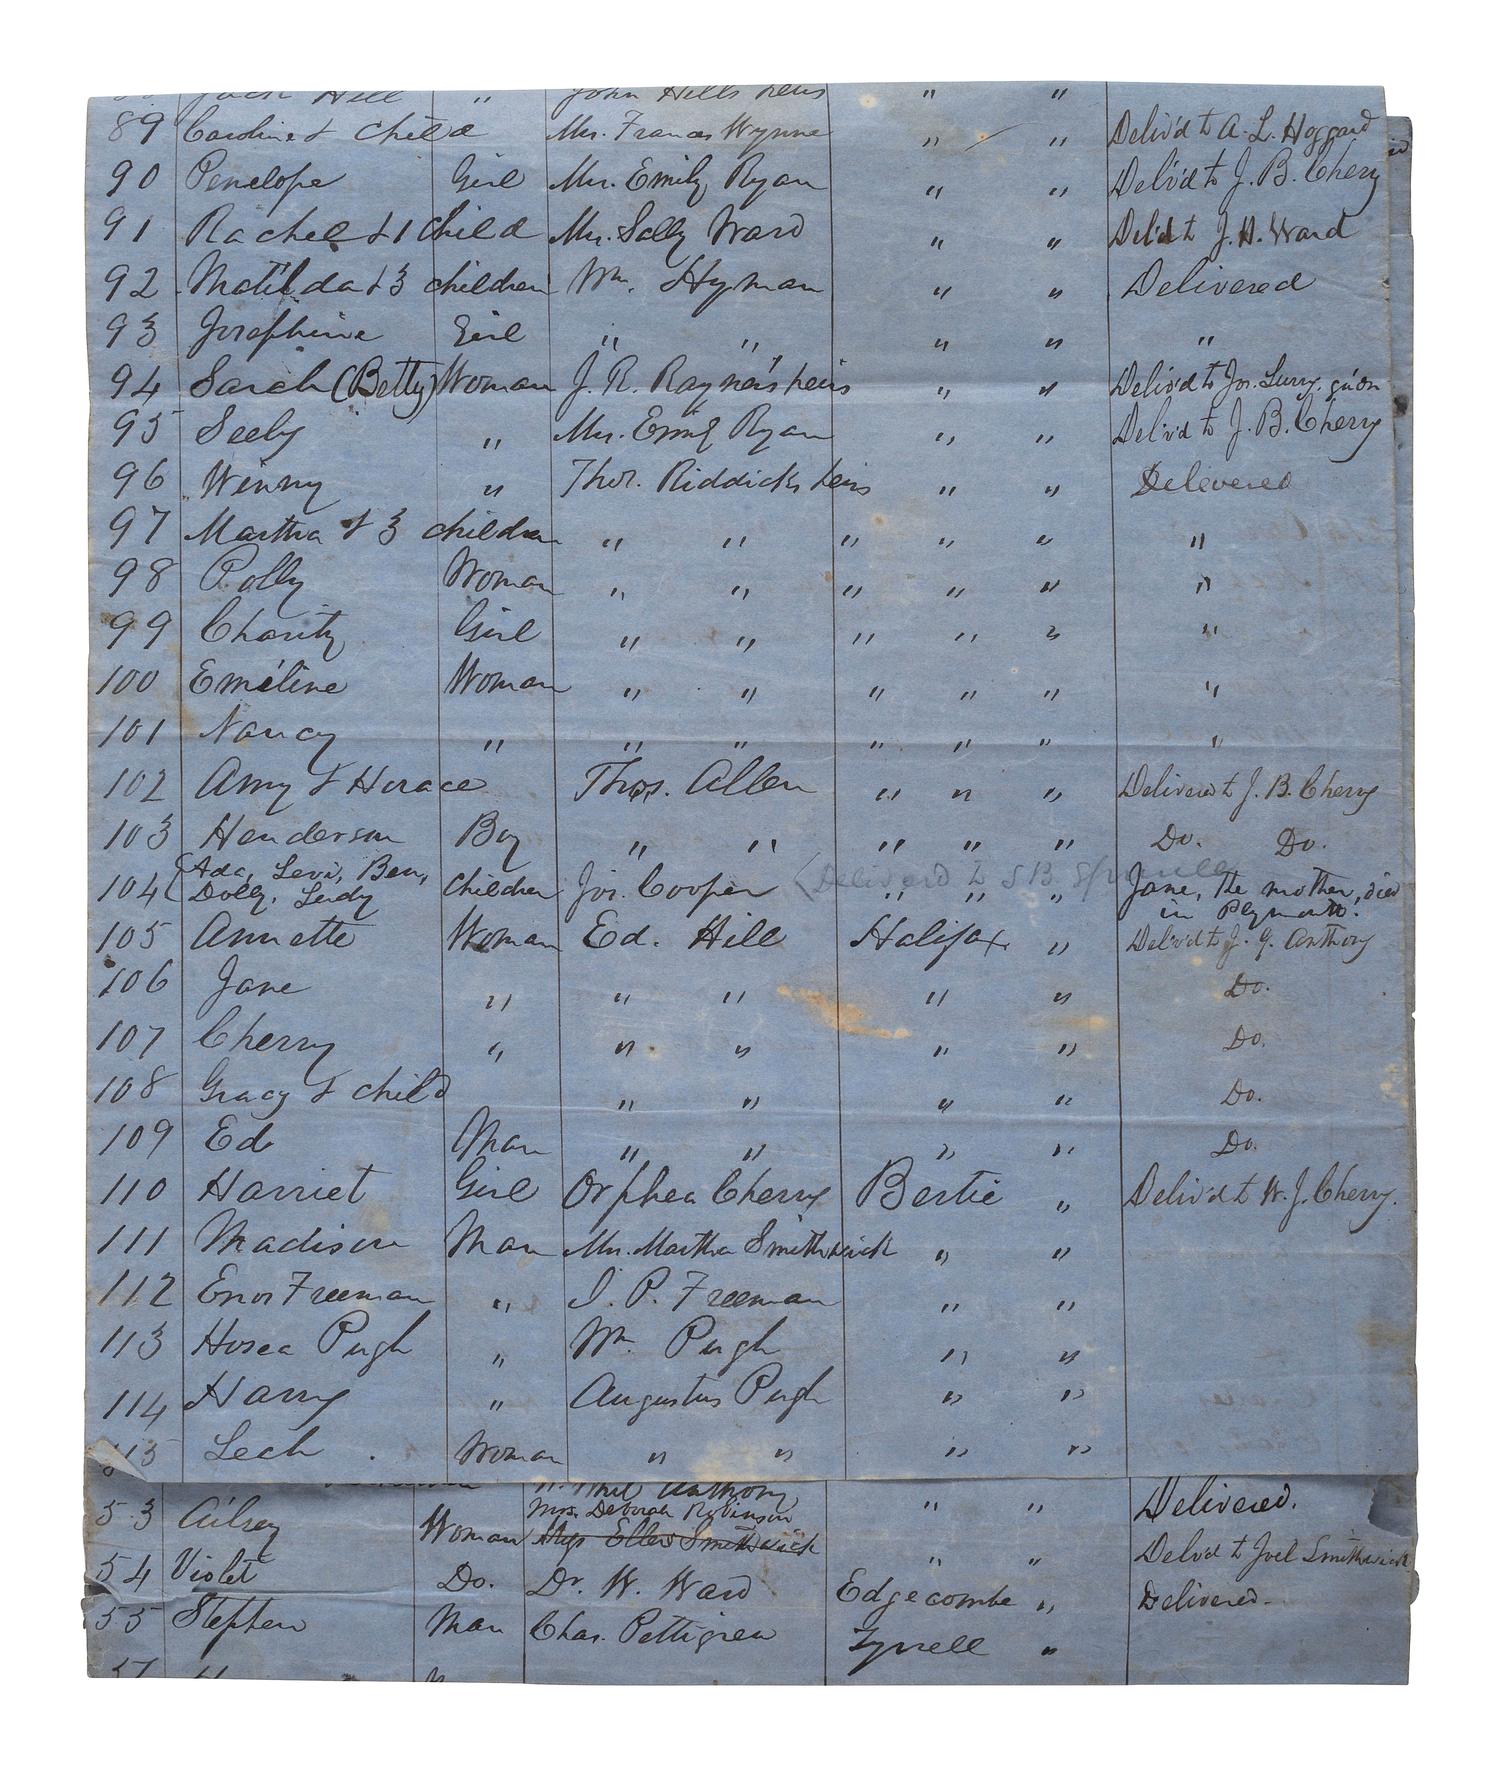 Jack Hill " John Hills heirs " "
89 Caroline & child Mrs. Frances Wynne " " Deliv'd to A. L. Hoggard
90 Penelope Girl Mrs. Emily Ryan " " Deliv'd to J. B. Cherry
91 Rachel & 1 child Mrs. Sally Ward " " Del'd to J. H. Ward
92 Matilda & 3 children Wm. Hyman " " Delivered
93 Josephine Girl " " " " "
94 Sarah (Betty) Woman J. R. Rayner's heirs " " Deliv'd to Jos. gu'dn
95 Seely " Mrs. Emily Ryan " " Deliv'd to J. B. Cherry
96 Winny " Thos. Riddicks heirs " " Delivered
97 Martha & 3 children " " " " " "
98 Polly Woman " " " " " "
99 Charity Girl " " " " " "
100 Emeline Woman " " " " " "
101 Nancy " " " " " " "
102 Amy & Horace Thos. Allen " " " Delivered to J. B. Cherry
103 Henderson Boy " " " " " Do. Do.
104 { Ada, Levi, Ben, Dolly, Lendy children Jos. Cooper (Delivered to S. B. Spruill " " " Jane, the mother, died
in Plymouth.
105 Annette Woman Ed. Hill Halifax " Deliv'd to J. J. Anthony
106 Jane " " " " " Do.
107 Cherry " " " " " Do.
108 Gracy & child " " " " Do.
109 Ed Man " " " " Do.
110 Harriet Girl Orphea Cherry Bertie " Deliv'd to W. J. Cherry.
111 Madison Man Mrs. Martha Smithwick " "
112 Enos Freeman " J. P. Freeman " "
113 Hosea Pugh " Wm. Pugh " "
114 Harry " Augustus Pugh " "
115 Leah . Woman " " " "
Anthony " " Delivered.
Mrs. Deborah Robinson
53 Ailsey Woman Mrs Ellen Smithwick " " Deliv'd to Joel Smithwick
54 Violet Do. Dr. W. Ward Edgecombe " Delivered.
55 Stephen Man Chas. Pettigrew Tyrrell "